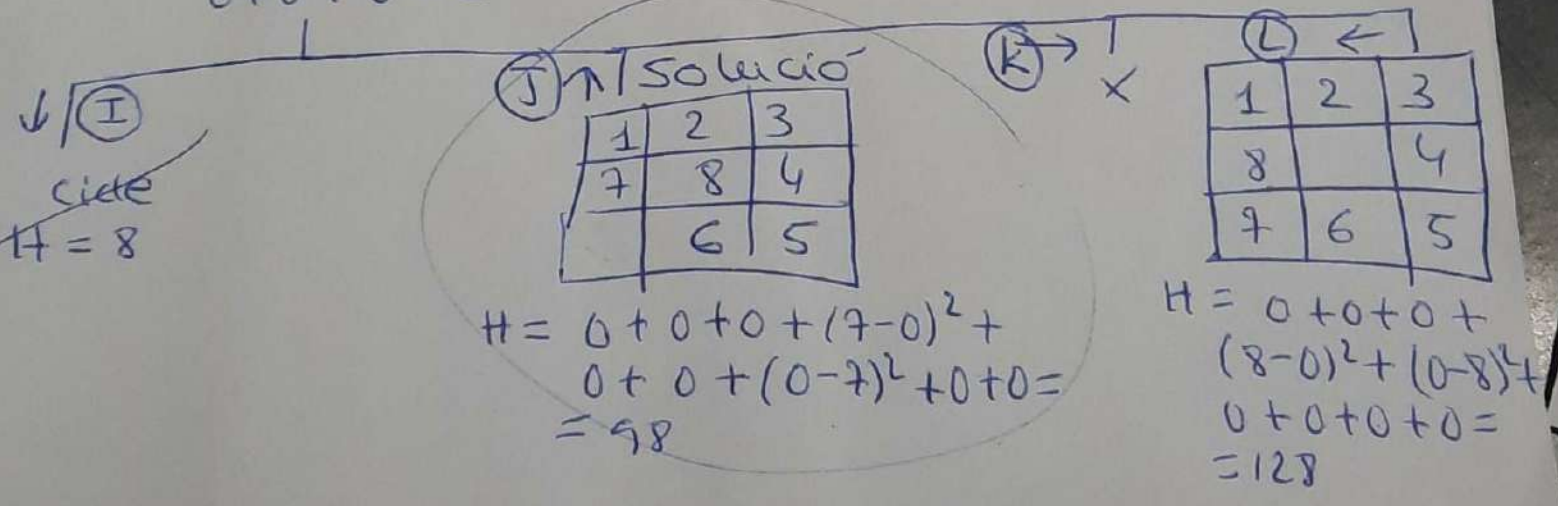 ↓ I
Cicle
H = 8
J ↑ Solució
1 2 3
7 8 4
6 5
H = 0 + 0 + 0 + (7-0)² +
0 + 0 + (0-7)² + 0 + 0 =
= 98
K → X
L ←
1 2 3
8 4
7 6 5
H = 0 + 0 + 0 +
(8-0)² + (0-8)² +
0 + 0 + 0 + 0 =
= 128